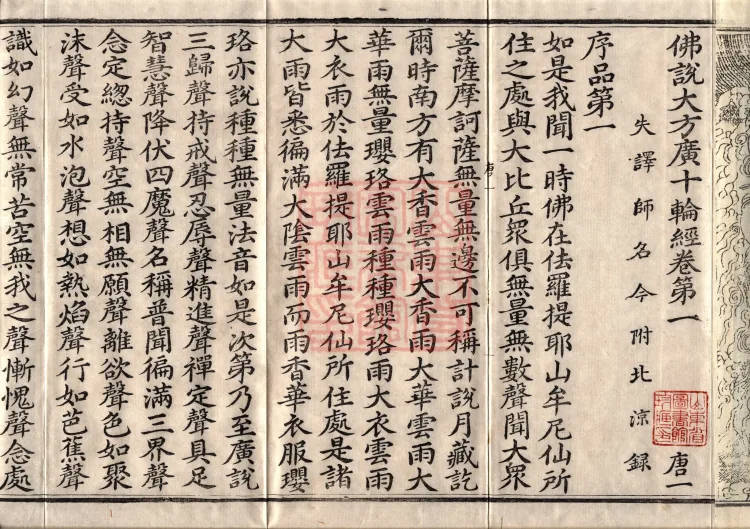 佛說大方廣十輪經卷第一 唐一
失譯師名今附北涼録
序品第一
如是我聞一時佛在佉羅提耶山牟尼仙所
住之處與大比丘眾俱無量無數聲聞大眾
菩薩摩訶薩無量無邊不可稱計說月藏訖
唐一
爾時南方有大香雲雨大香雨大華雲雨大
華雨無量瓔珞雲雨種種瓔珞雨大衣雲雨
大衣雨於佉羅提耶山牟尼仙所住處是諸
大雨皆悉徧滿大陰雲雨而雨香華衣服瓔
珞亦說種種無量法音如是次第乃至廣說
三歸聲持戒聲忍辱聲精進聲禪定聲具足
智慧聲降伏四魔聲名稱普聞徧滿三界聲
念定緫持聲空無相無願聲離欲聲色如聚
沫聲受如水泡聲想如熱焰聲行如芭蕉聲
識如幻聲無常苦空無我之聲慚愧聲念處